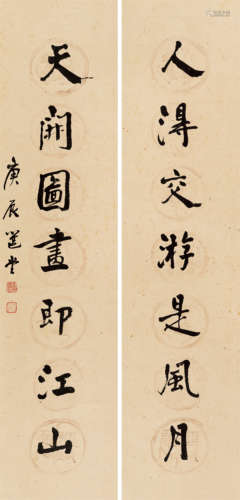 人得交游是風月
天開圖畫即江山
庚辰